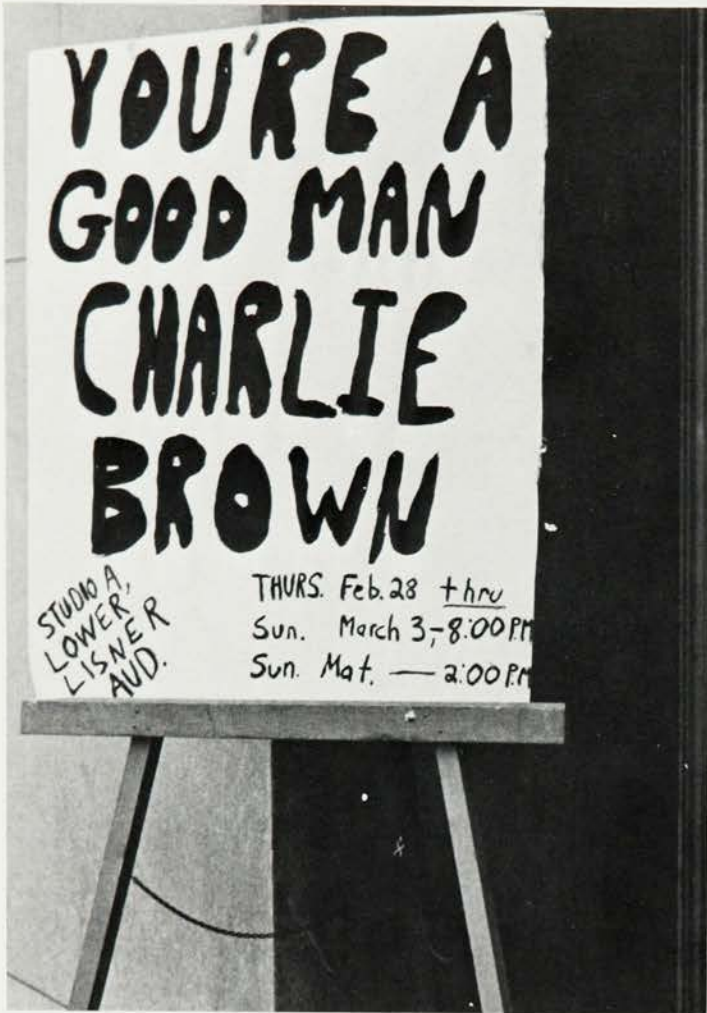 YOU'RE A
GOOD MAN
CHARLIE
BROWN
STUDIO A,
LOWER
LISNER
AUD.
THURS. Feb. 28 thru
Sun. March 3,-8:00 P.M
Sun. Mat. — 2:00 P.M